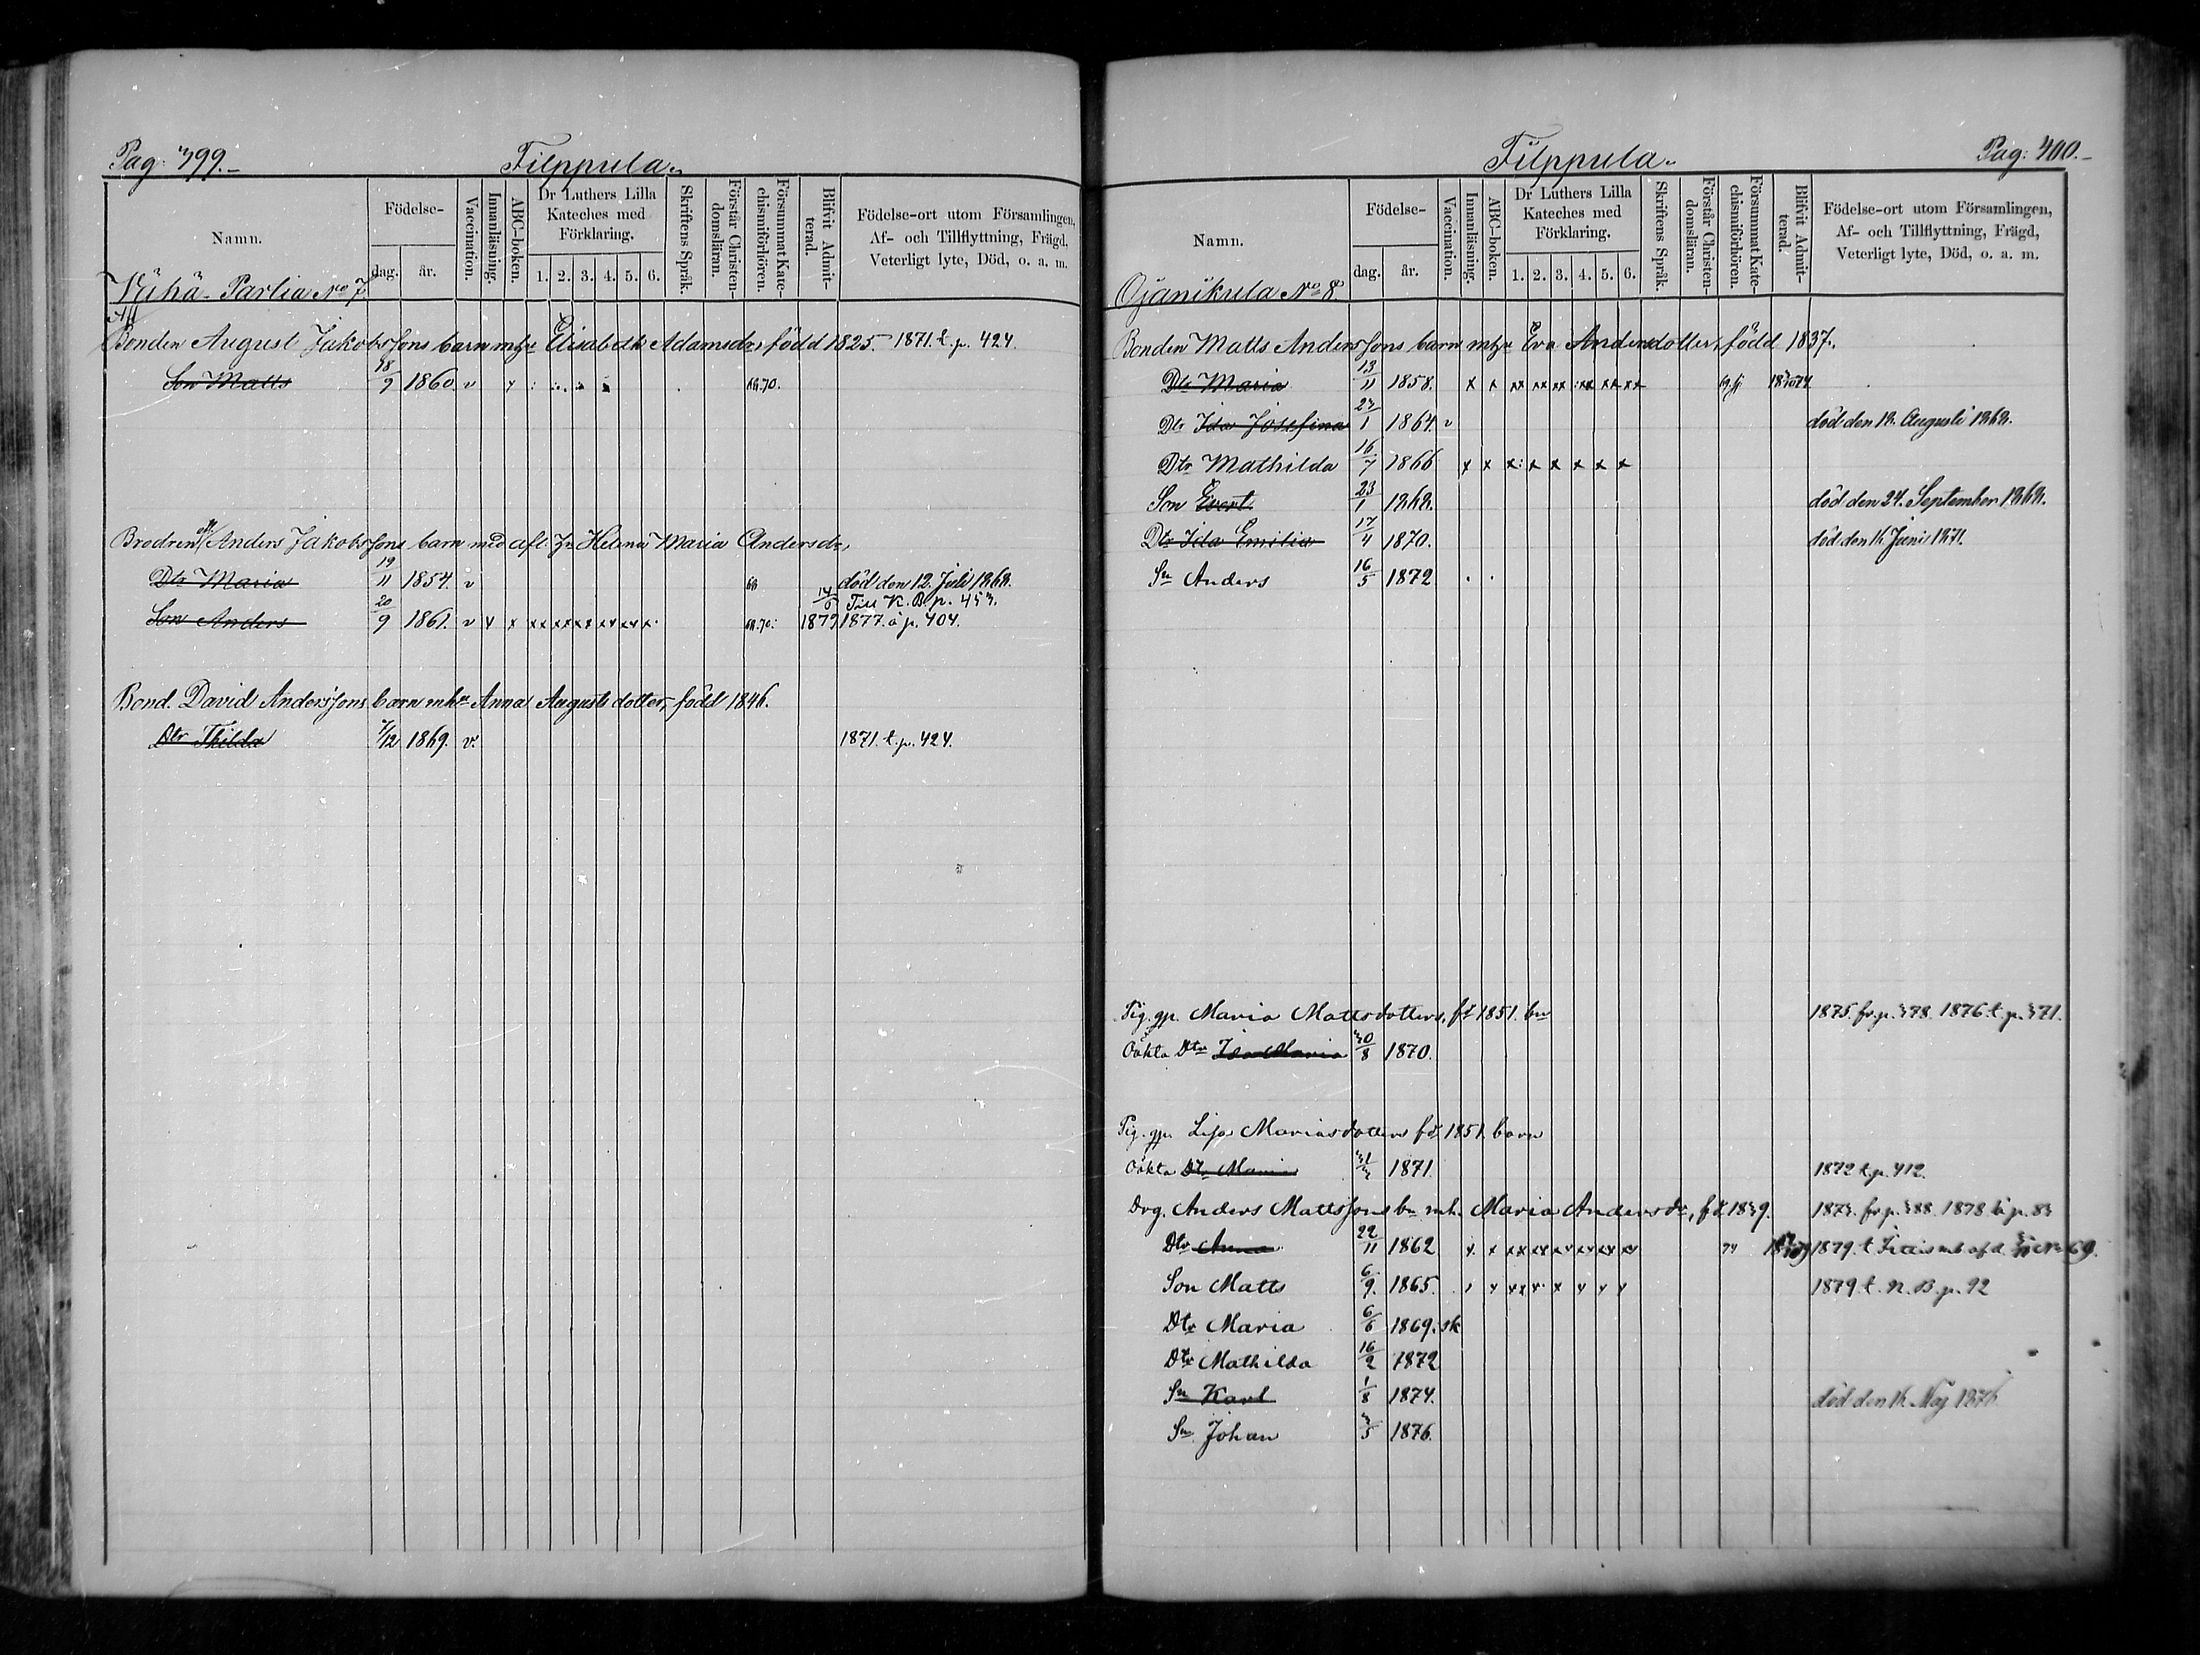 Pag: 399.
Filppula.
Namn.
Födelse-
dag.
år.
Vaccination.
Innanläsning.
ABC-boken.
Dr Luthers Lilla Kateches med Förklaring.
1. 2. 3. 4. 5. 6.
Skriftens Språk.
Förstår Christendomsläran.
Försummat Katechismiförhören.
Blifvit Admitterad.
Födelse-ort utom Församlingen, Af- och Tillflyttning, Frägd, Veterligt lyte, Död, o. a. m.
Vähä-Parlia No 7
Afl
Bonden August Jakobssons barn mhu Elisabeth Adamsdr, född 1825. 1871. t. p. 424.
Son Matts 18/9 1860. v 68.70.
Brodren afl Anders Jakobssons barn med afl. hu Helena Maria Andersdr,
Dtr Maria 19/11 1854. v 68 död den 12. Juli 1868.
Till K. B. p. 453.
Son Anders 20/9 1861. v x x xx xx xx xx xx x 68.70. 14/6 1879 1877. à p. 404.
Bond. David Anderssons barn mhu Anna Augustsdotter, född 1846.
Dtr Thilda 7/12 1869. v. 1871. t. p. 424.
Filppula.
Pag: 400.
Namn.
Födelse-
dag.
år.
Vaccination.
Innanläsning.
ABC-boken.
Dr Luthers Lilla Kateches med Förklaring.
1. 2. 3. 4. 5. 6.
Skriftens Språk.
Förstår Christendomsläran.
Försummat Katechismiförhören.
Blifvit Admitterad.
Födelse-ort utom Församlingen, Af- och Tillflyttning, Frägd, Veterligt lyte, Död, o. a. m.
Ojanikula No 8.
Bonden Matts Anderssons barn mhu Eva Andersdotter, född 1837.
Dtr Maria 13/11 1858. x x xx xx xx xx xx xx
Dtr Ida Josefina 23/1 1864. v död den 18. Augusti 1868.
Dtr Mathilda 16/7 1866 x x x x x x x x
Son Evert 23/1 1868. död den 24. September 1868.
Dtr Ida Emilia 17/4 1870. död den 16 Juni 1871.
Sn Anders 16/5 1872
Pig. gp. Maria Mattsdotters, fd 1851. bn 1875. fr. p. 378. 1876. t. p. 371.
Oäkta Dtr Ida Maria 30/8 1870.
Pig. gp. Lisa Mariasdotters fd. 1851. barn
Oäkta Dtr Maria 31/3 1871. 1872 t. p. 412.
Drg. Anders Mattssons bn mh. Maria Andersdr, fd. 1839. 1873. fr. p. 388. 1878. till p. 83
Dtr Anna 22/11 1862 x. x xx xx xx xx xx xx 74 1879. t.
Son Matts 6/9. 1865. x x xx x x x x x 1879. t. N. B. p. 92
Dtr Maria 6/6 1869. sk
Dtr Mathilda 16/2 1872
Sn Karl 1/8 1874. död den 16. Maj 1876
Sn Johan 3/5 1876.